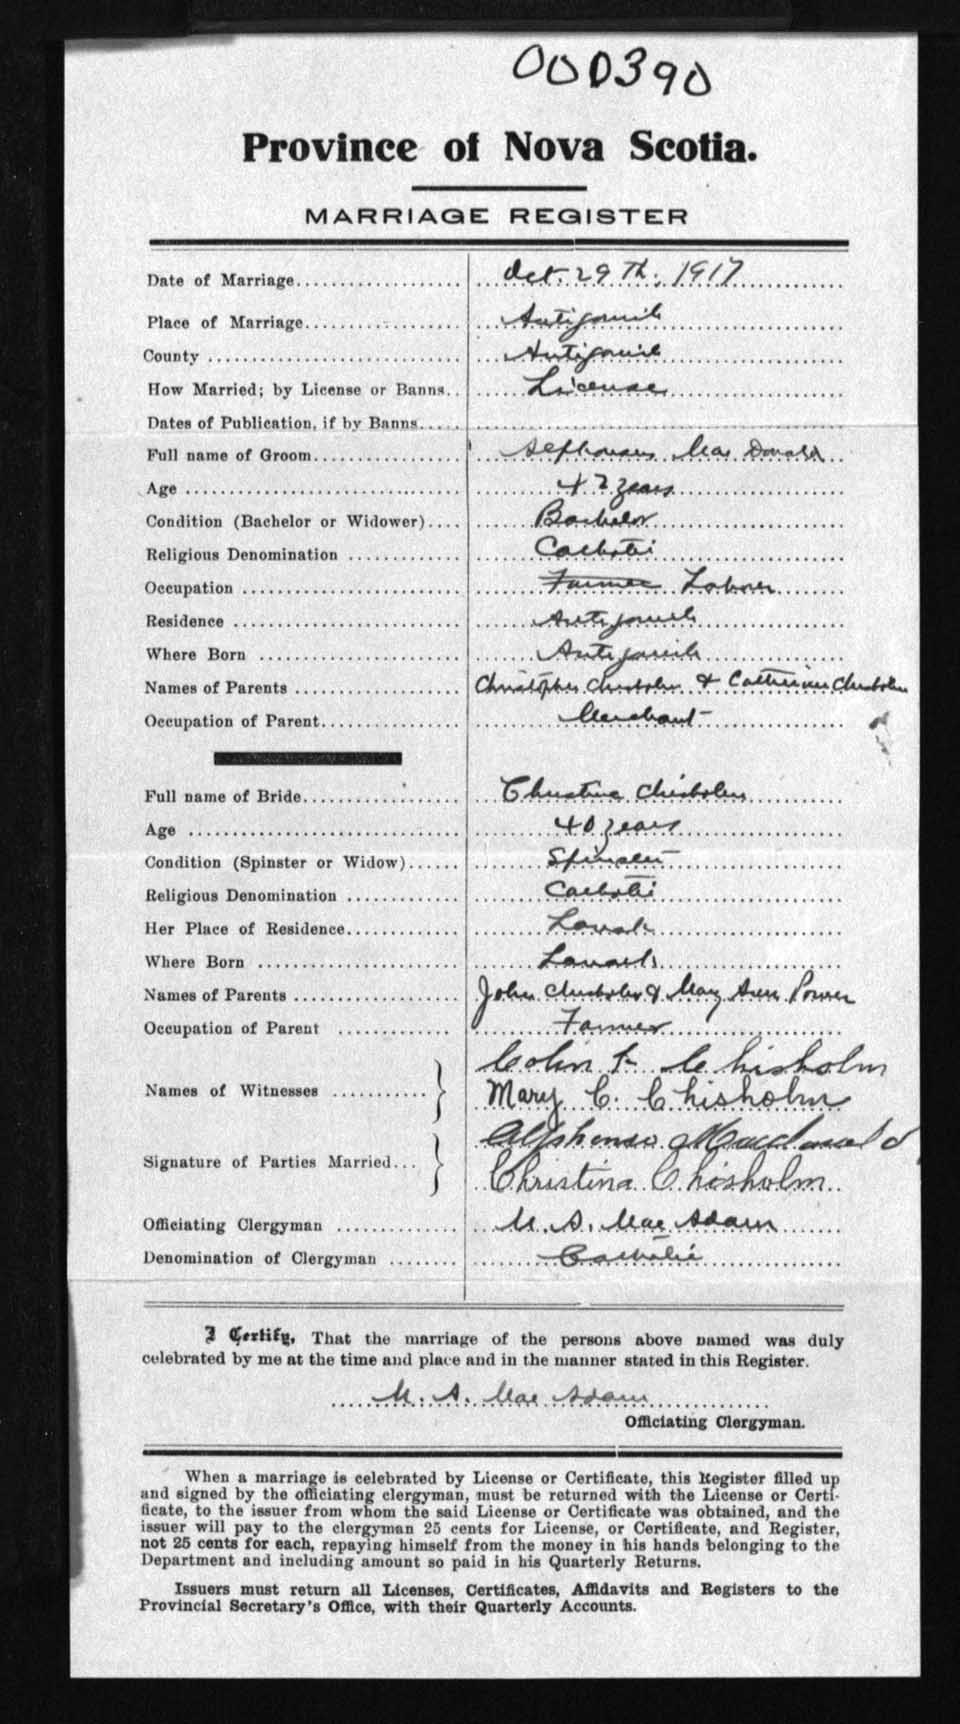 000390
Province of Nova Scotia.
MARRIAGE REGISTER
Date of Marriage Oct. 29th, 1917
Place of Marriage Antigonish
County Antigonish
How Married; by License or Banns License
Dates of Publication, if by Banns
Full name of Groom Alphonsus MacDonald
Age 42 years
Condition (Bachelor or Widower) Bachelor
Religious Denomination Catholic
Occupation Farmer Laborer
Residence Antigonish
Where Born Antigonish
Names of Parents Christopher Chisholm & Catherine Chisholm
Occupation of Parent Merchant
Full name of Bride Christina Chisholm
Age 40 years
Condition (Spinster or Widow) Spinster
Religious Denomination Catholic
Her Place of Residence Lanark
Where Born Lanark
Names of Parents John Chisholm & Mary Ann Power
Occupation of Parent Farmer
Names of Witnesses Colin F. Chisholm
Mary C. Chisholm
Signature of Parties Married Alphonso Macdonald
Christina Chisholm
Officiating Clergyman M. A. MacAdam
Denomination of Clergyman Catholic
I Certify, That the marriage of the persons above named was duly
celebrated by me at the time and place and in the manner stated in this Register.
M. A. MacAdam
Officiating Clergyman.
When a marriage is celebrated by License or Certificate, this Register filled up
and signed by the officiating clergyman, must be returned with the License or Certi-
ficate, to the issuer from whom the said License or Certificate was obtained, and the
issuer will pay to the clergyman 25 cents for License, or Certificate, and Register,
not 25 cents for each, repaying himself from the money in his hands belonging to the
Department and including amount so paid in his Quarterly Returns.
Issuers must return all Licenses, Certificates, Affidavits and Registers to the
Provincial Secretary's Office, with their Quarterly Accounts.